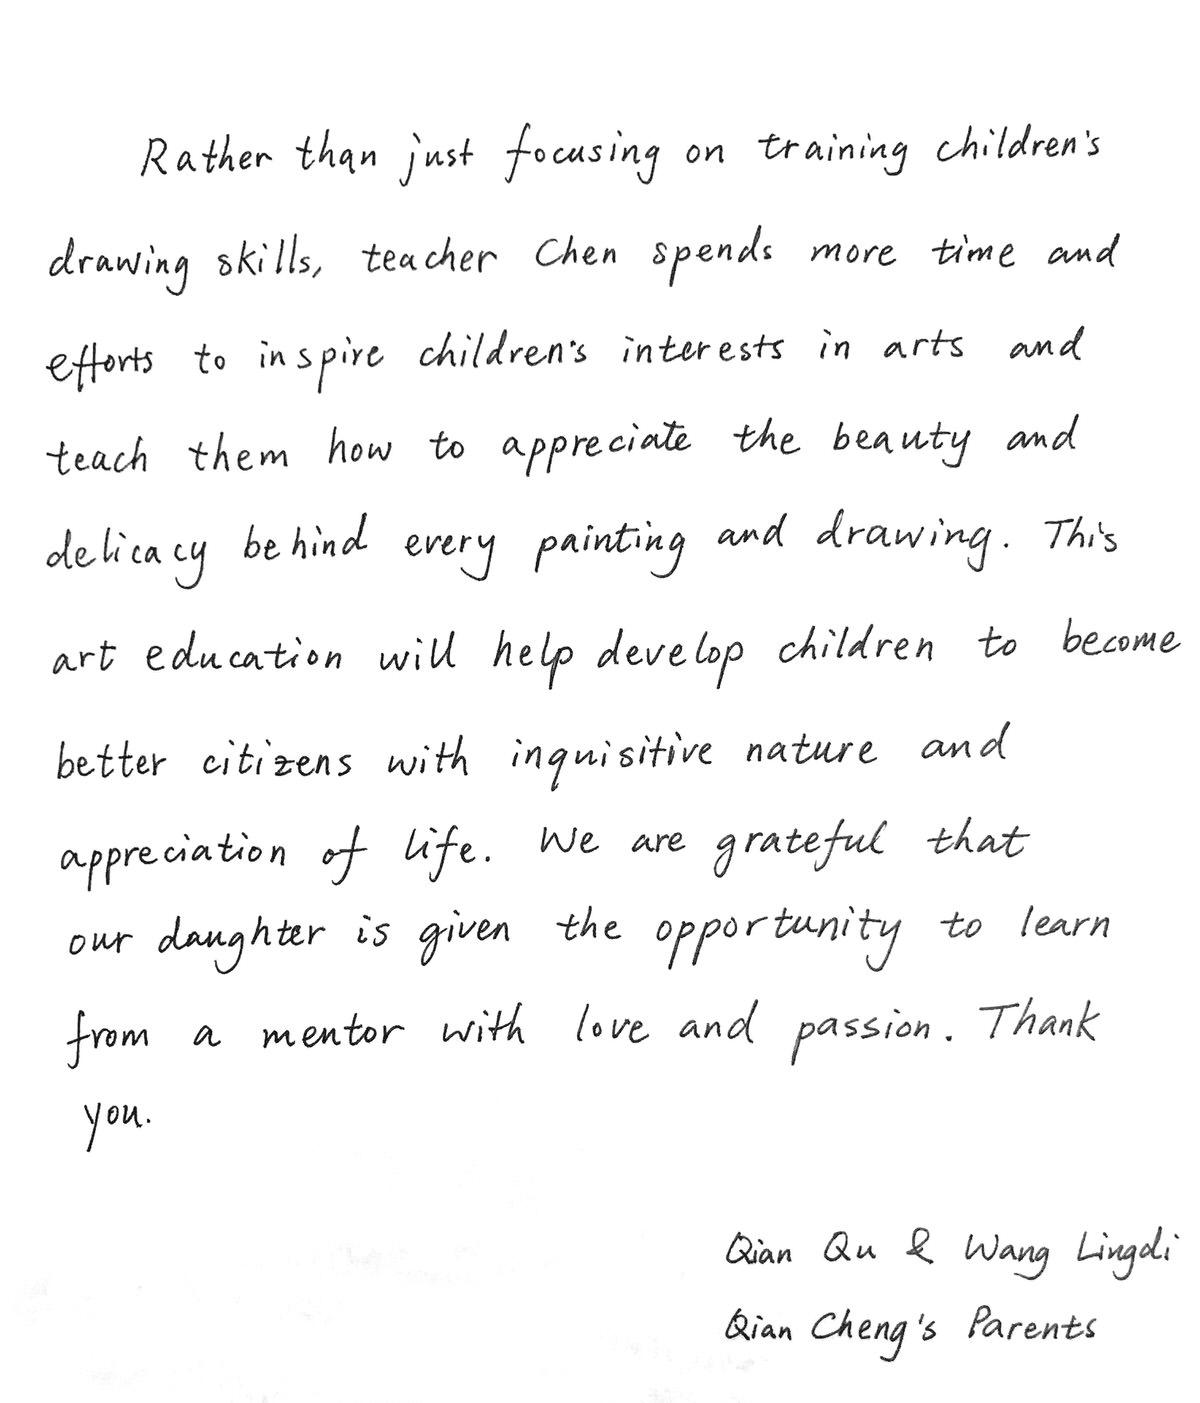 Rather than just focusing on training children's
drawing skills, teacher Chen spends more time and
efforts to inspire children's interests in arts and
teach them how to appreciate the beauty and
delicacy behind every painting and drawing. This
art education will help develop children to become
better citizens with inquisitive nature and
appreciation of life. We are grateful that
our daughter is given the opportunity to learn
from a mentor with love and passion. Thank
you.
Qian Qu & Wang Lingdi
Qian Cheng's Parents